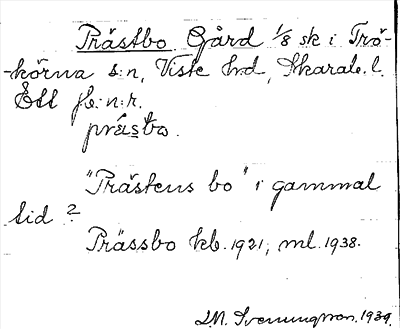 Prästbo Gård 1/8 sk i Trö-
-körna s:n, Viste hrd, Skarab. l.
Ett fb:n:r.
prästbo.
"Prästens bo" i gammal
tid?
Prässbo kb. 1921; ml. 1938.
J.M. Svenningsson. 1939.